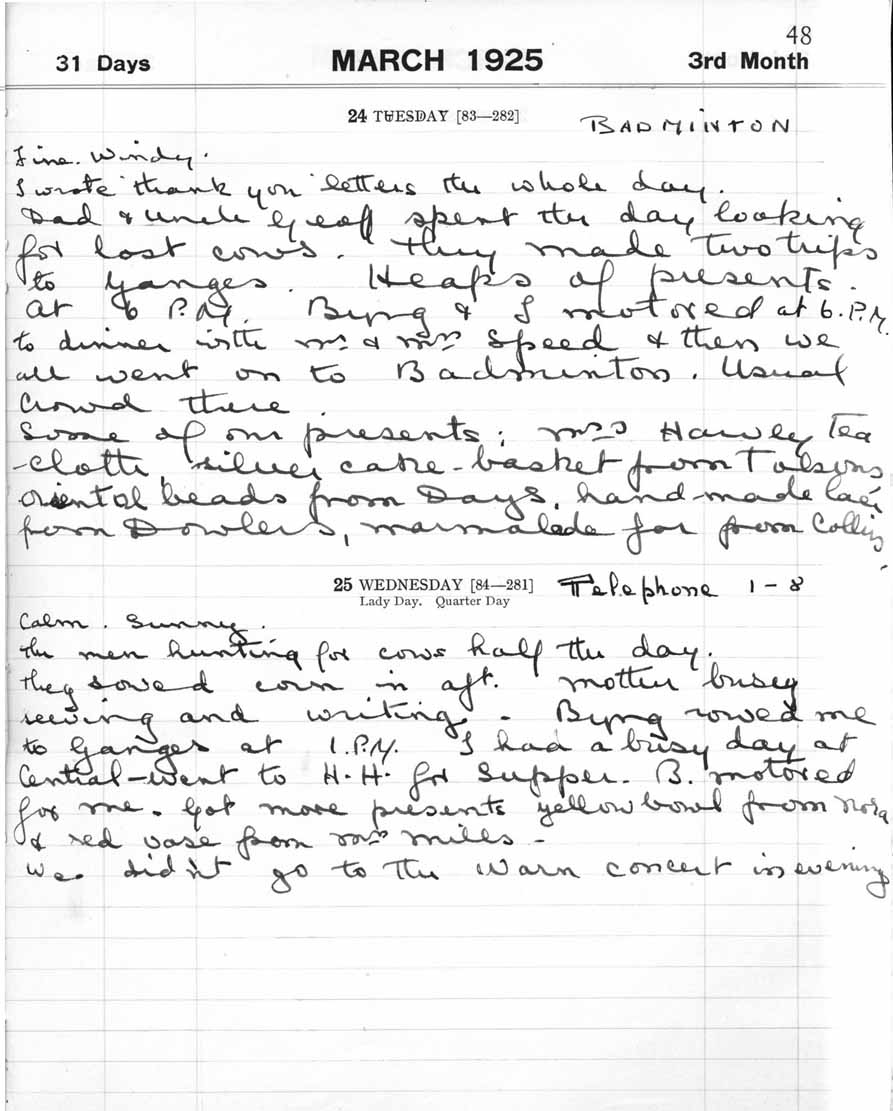 48
31 Days MARCH 1925 3rd Month
24 TUESDAY [83—282] BADMINTON
Fine. Windy.
I wrote "thank you" letters the whole day.
Dad & Uncle Geoff spent the day looking
for lost cows. They made two trips
to Ganges. Heaps of presents.
At 6 P.M. Byng & I motored at 6. P.M.
to dinner with Mr & Mrs Speed & then we
all went on to Badminton. Usual
crowd there.
Some of our presents; Mrs Hawley Tea
-cloth, silver cake-basket from Tolsons
oriental beads from Days, hand-made lace
from Dowlers, marmalade jar from Collins,
25 WEDNESDAY [84—281] Telephone 1-8
Lady Day. Quarter Day
Calm. Sunny.
The men hunting for cows half the day.
They sowed corn in aft. Mother busy
sewing and writing. Byng rowed me
to Ganges at 1.P.M. I had a busy day at
Central - went to H.H. for supper. B. motored
for me. Got more presents yellow bowl from Nora
& red vase from Mrs Mills -
We didn't go to the concert in evening